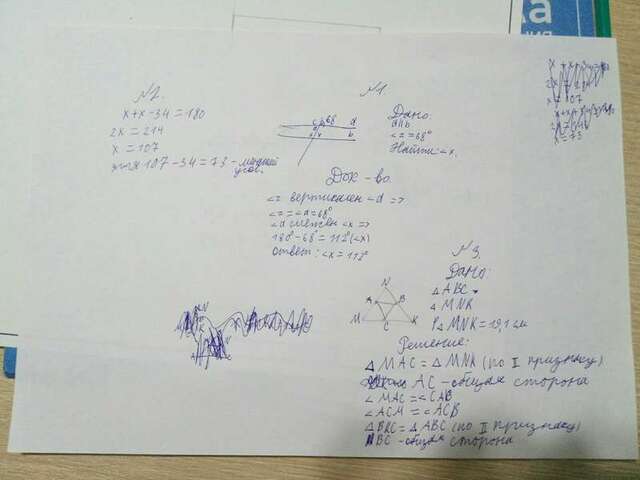 ка
ния
№2.
x+x-34=180
2x=214
x=107
107-34=73 - меньший
угол.
№1.
c 68° a
x b
Дано:
a||b
<2=68°
Найти: <x.
Док-во.
<2= вертикален <d =>
<2=<d=68°
<d смежен <x =>
180°-68°=112°(<x)
ответ: <x=112°
x=107
x=73
№3.
Дано:
△ABC
△MNK
P△MNK=19,1 см
N
A B
M C K
Решение:
△MAC=△MNA (по II признаку)
AC - общая сторона
<MAC=<CAB
<ACM=<ACB
△BKC=△ABC (по II признаку)
BC - общая сторона